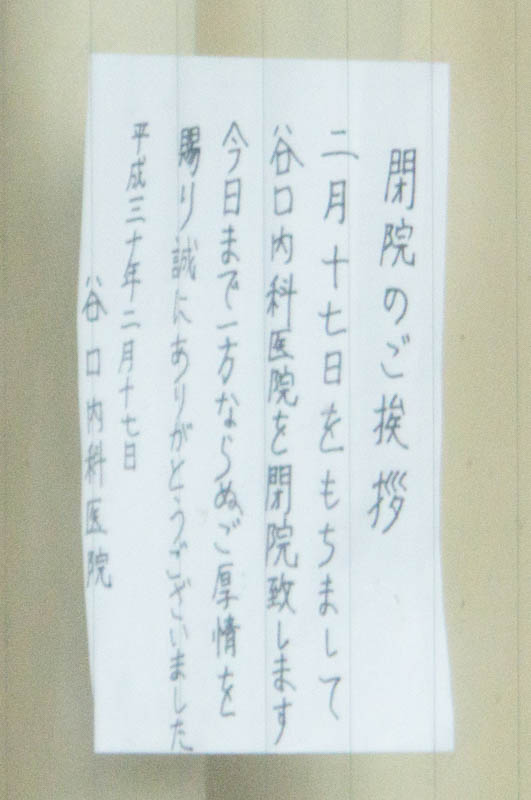 閉院のご挨拶
二月十七日をもちまして
谷口内科医院を閉院致します
今日まで一方ならぬご厚情を
賜り誠にありがとうございました
平成三十年二月十七日
谷口内科医院